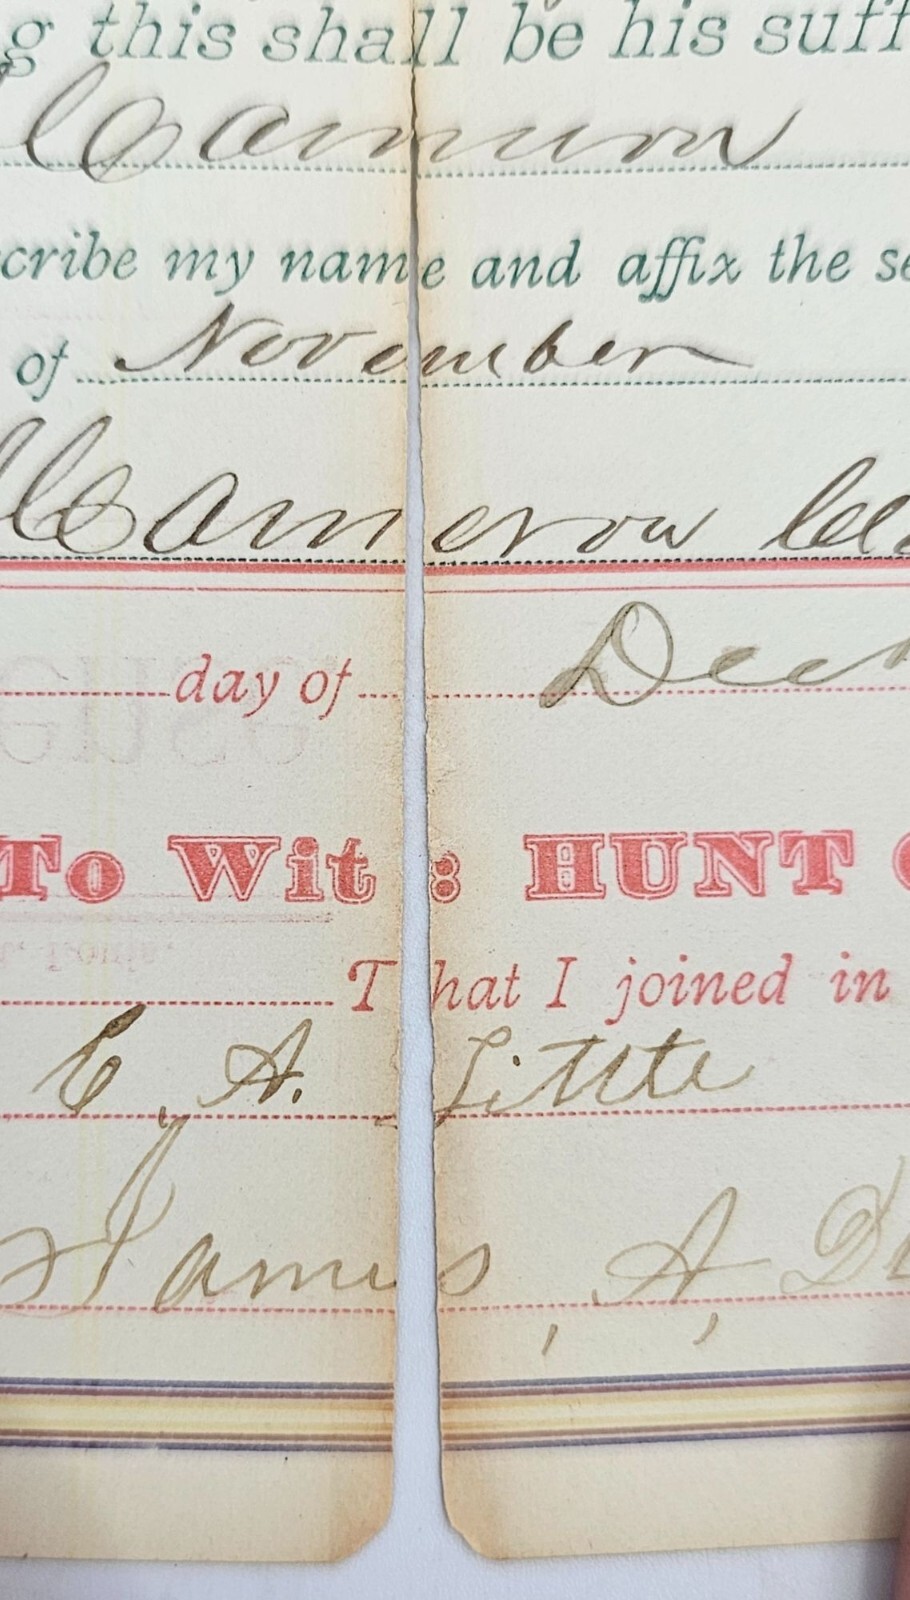 g this shall be his suff
Cameron
cribe my name and affix the se
of November
Cameron
day of
To Wit: HUNT
That I joined in
C. A. Little
James A.